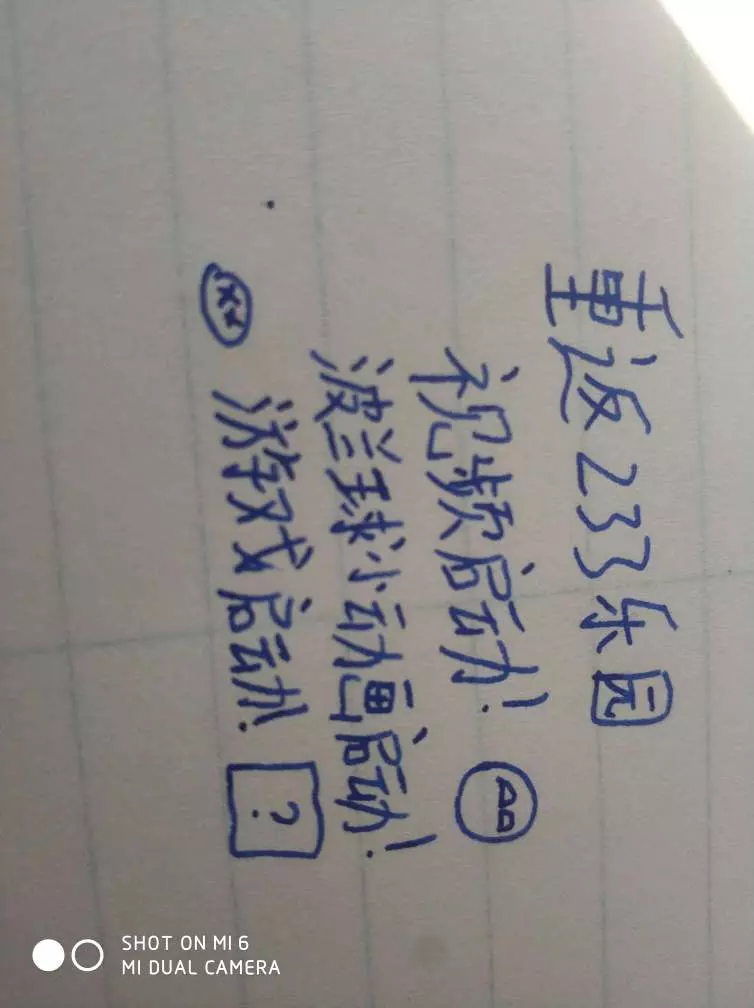 重返233乐园
视频启动!
波兰球小动画启动!
游戏启动!
?
SHOT ON MI 6
MI DUAL CAMERA